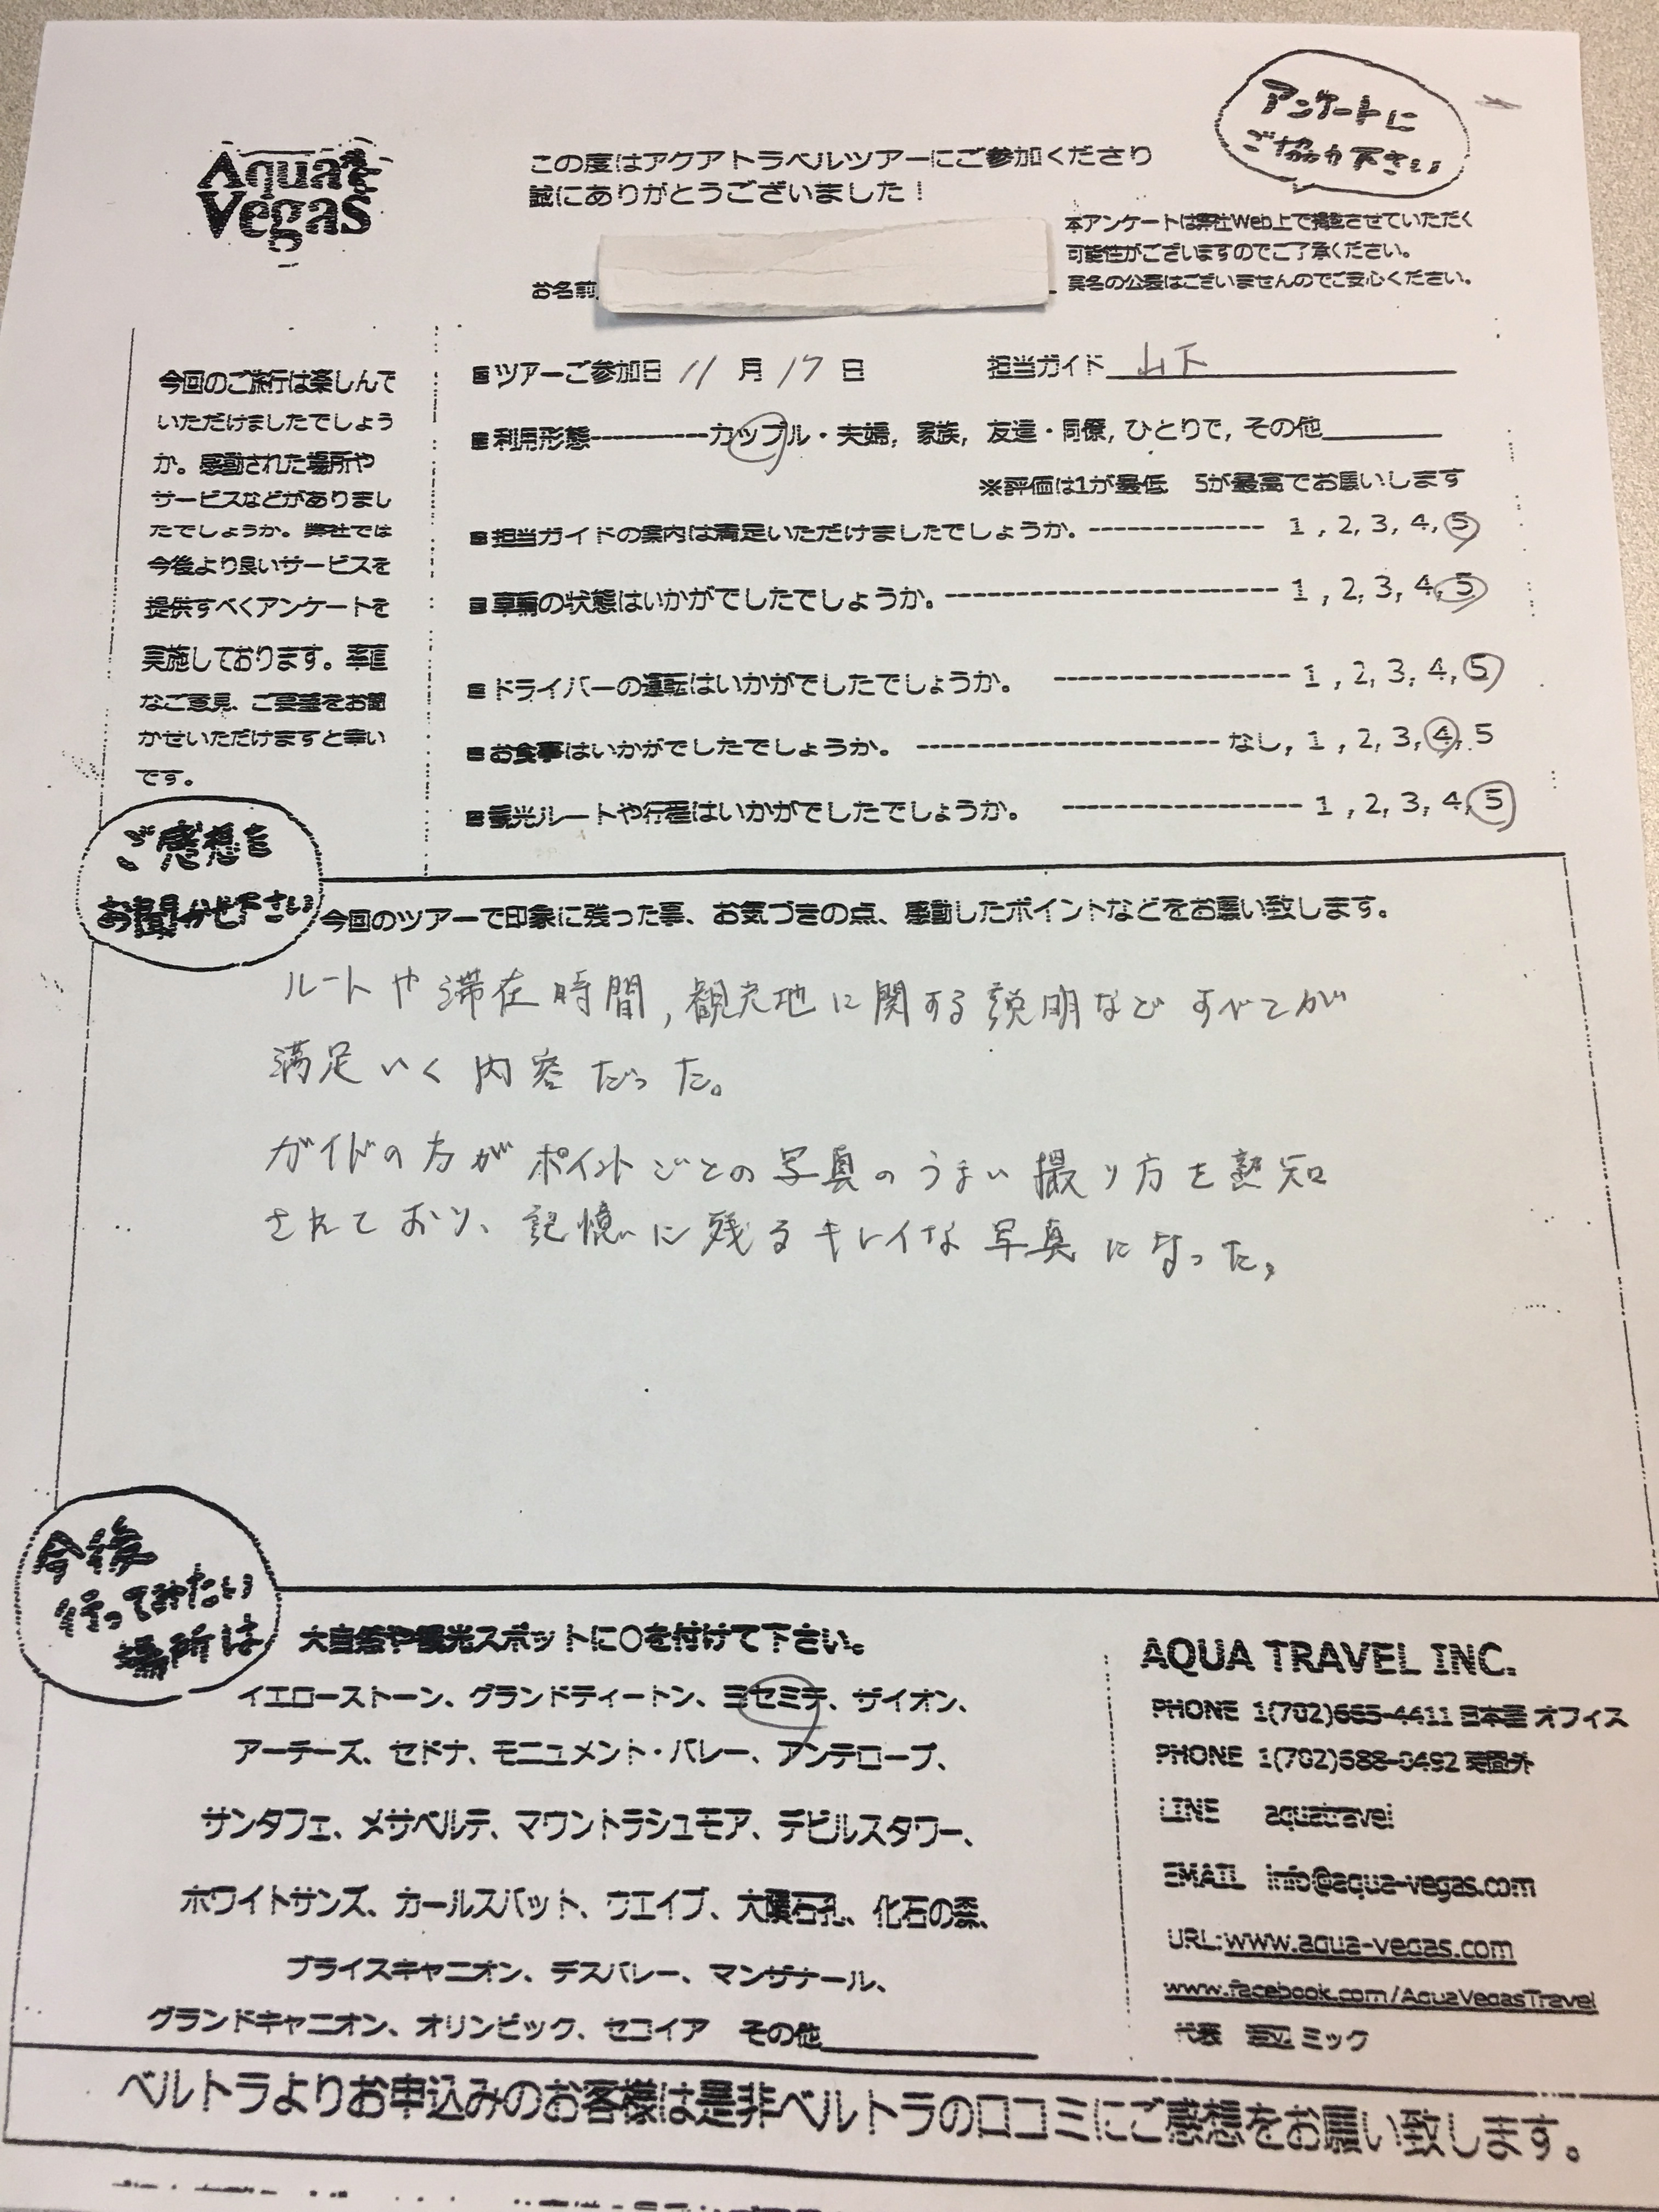 アンケートに
ご協力下さい
Aqua
Vegas
この度はアクアトラベルツアーにご参加くださり
誠にありがとうございました!
本アンケートは弊社Web上で掲載させていただく
可能性がございますのでご了承ください。
実名の公表はございませんのでご安心ください。
お名前
今回のご旅行は楽しんで
いただけましたでしょう
か。感動された場所や
サービスなどがありまし
たでしょうか。弊社では
今後より良いサービスを
提供すべくアンケートを
実施しております。率直
なご意見、ご要望をお聞
かせいただけますと幸い
です。
■ツアーご参加日 11 月 17 日 担当ガイド 山下
■利用形態----------カップル・夫婦, 家族, 友達・同僚, ひとりで, その他
※評価は1が最低 5が最高でお願いします
■担当ガイドの案内は満足いただけましたでしょうか。------------- 1 , 2, 3, 4, 5
■車輌の状態はいかがでしたでしょうか。------------------------- 1 , 2, 3, 4, 5
■ドライバーの運転はいかがでしたでしょうか。 ----------------- 1 , 2, 3, 4, 5
■お食事はいかがでしたでしょうか。 --------------------- なし, 1 , 2, 3, 4, 5
■観光ルートや行程はいかがでしたでしょうか。 ----------------- 1 , 2, 3, 4, 5
ご感想を
お聞かせ下さい
今回のツアーで印象に残った事、お気づきの点、感動したポイントなどをお願い致します。
ルートや滞在時間,観光地に関する説明などすべてが
満足いく内容だった。
ガイドの方がポイントごとの写真のうまい撮り方を熟知
されており、記憶に残るキレイな写真になった。
今後
行ってみたい
場所は
大自然や観光スポットに〇を付けて下さい。
イエローストーン、グランドティートン、ヨセミテ、ザイオン、
アーチーズ、セドナ、モニュメント・バレー、アンテロープ、
サンタフェ、メサベルデ、マウントラシュモア、デビルスタワー、
ホワイトサンズ、カールスバット、ウエイブ、大隕石孔、化石の森、
ブライスキャニオン、デスバレー、マンザナール、
グランドキャニオン、オリンピック、セコイア その他
AQUA TRAVEL INC.
PHONE 1(702)665-4411 日本語 オフィス
PHONE 1(702)688-0492 時間外
LINE aquatravel
EMAIL info@aqua-vegas.com
URL:www.aqua-vegas.com
www.facebook.com/AquaVegasTravel
代表 渡辺 ミック
ベルトラよりお申込みのお客様は是非ベルトラの口コミにご感想をお願い致します。